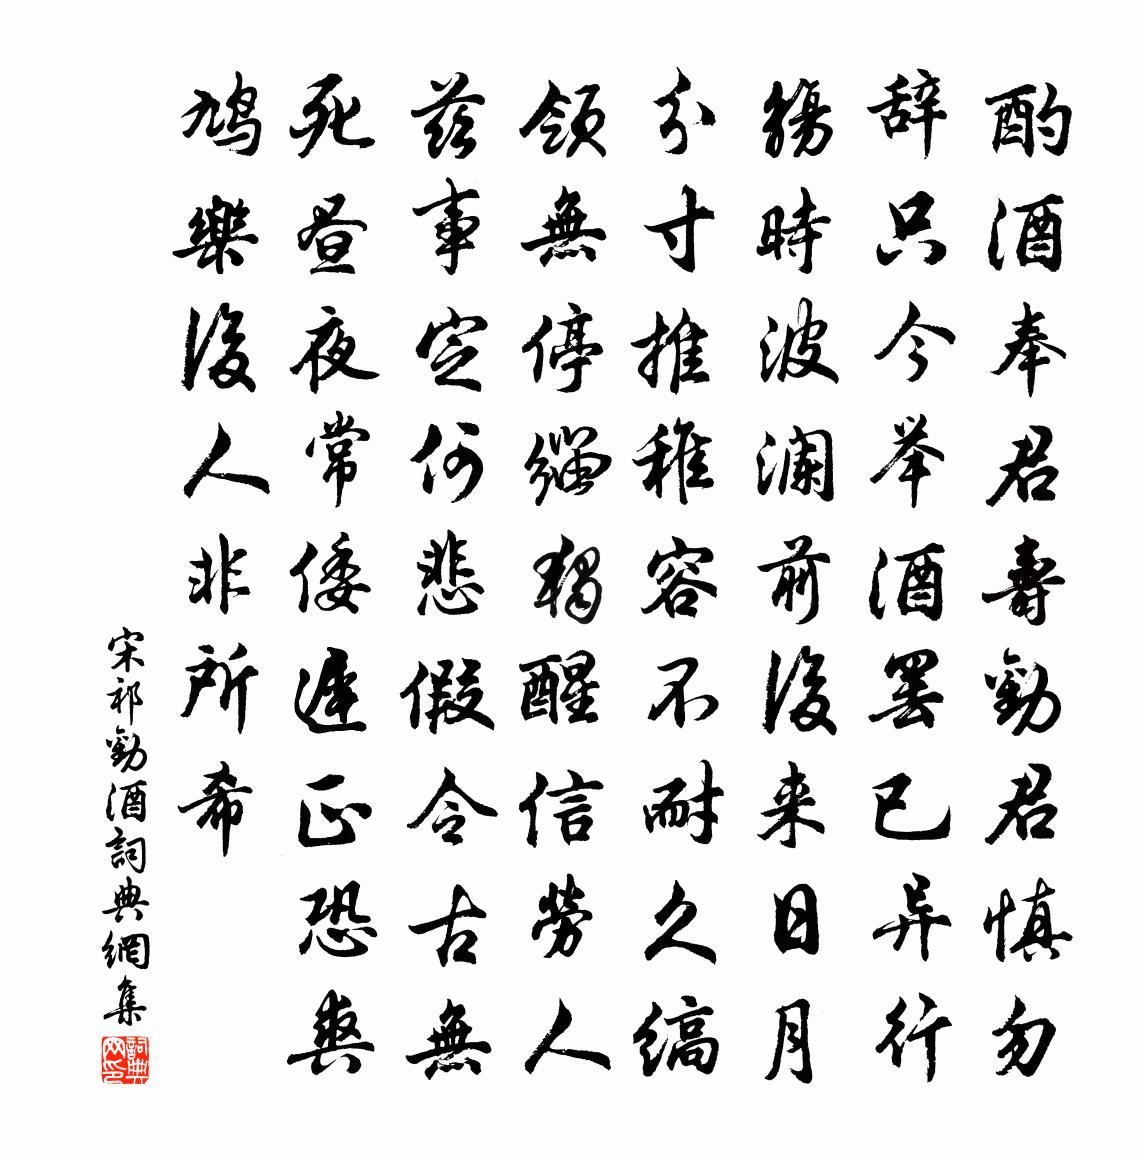 酌酒奉君壽勸君慎勿
辞只今举酒罢已异行
觴時波澜前後来日月
分寸推稚容不耐久縞
領無停緇獨醒信勞人
茲事定何悲假令古無
死昼夜常倭遲正恐爽
鳩樂後人非所希
宋祁勸酒詞典網集
詞典网印